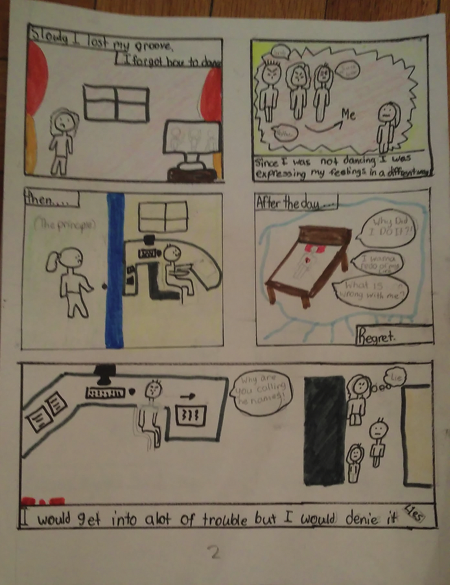 Slowly I lost my groove,
I forgot how to dance
Me
Since I was not dancing I was
expressing my feelings in a different way
then....
(The principle)
After the day....
Why Did
I DO IT?!
I wanna
What is
wrong with me?
Regret.
Why are
you calling
me names?!
lie
I would get into alot of trouble but I would denie it
Yes
2